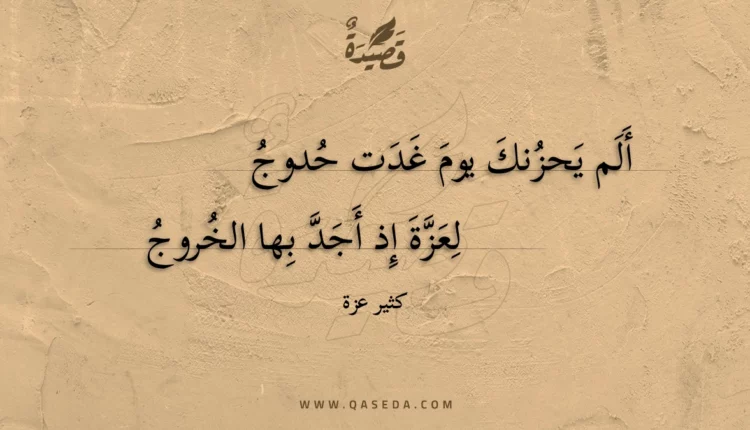 قَصِيدَةٌ
أَلَم يَحزُنكَ يومَ غَدَت حُدوجُ
لِعَزَّةَ إِذ أَجَدَّ بِها الخُروجُ
كثير عزة
WWW.QASEDA.COM